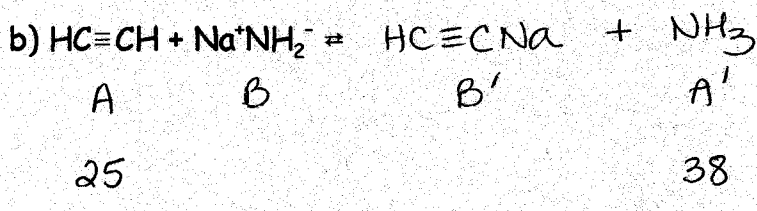 b) HC≡CH + Na⁺NH₂⁻ ⇌ HC≡CNa + NH₃
A B B' A'
25 38